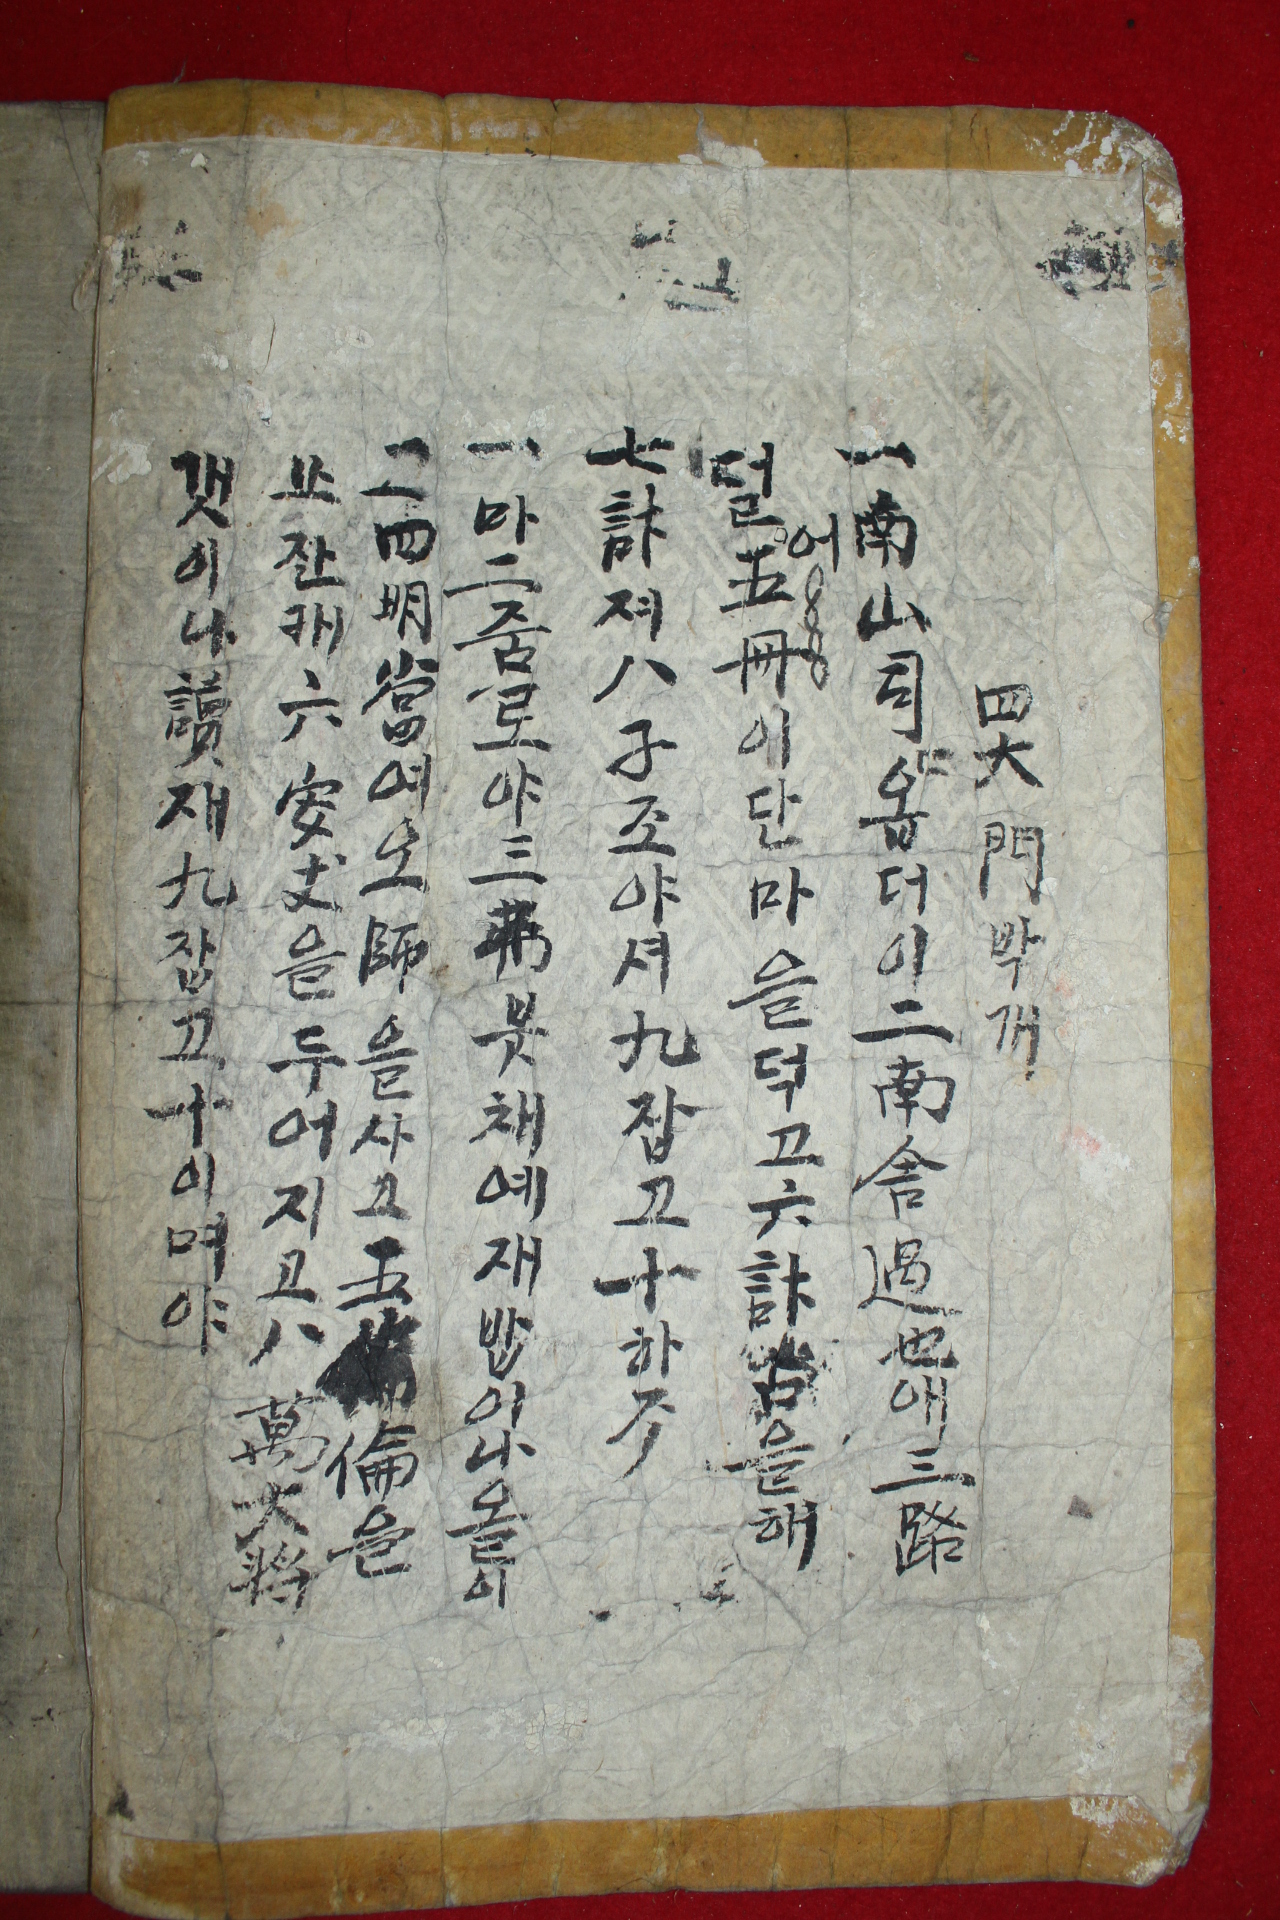 四大門박개
一南山司읍더이二南舍過也애三路
덜五冊이단마을덕고六訃을해
어
七訃져八子조야셔九잡고十하주
一마二줌로야三弗붓채예재밥이나올이
그四明當여오師을사고五倫을
쯔잔캐六安丈을두어지고八萬大將
갯이나讀재九잡고十이며야